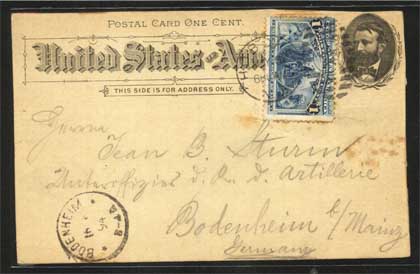 POSTAL CARD ONE CENT.
United States of America
THIS SIDE IS FOR ADDRESS ONLY.
1 1
Herrn
Jean B. Sturm
Unteroffizier d. R. d. Artillerie
Bodenheim b/Mainz
Germany
BODENHEIM